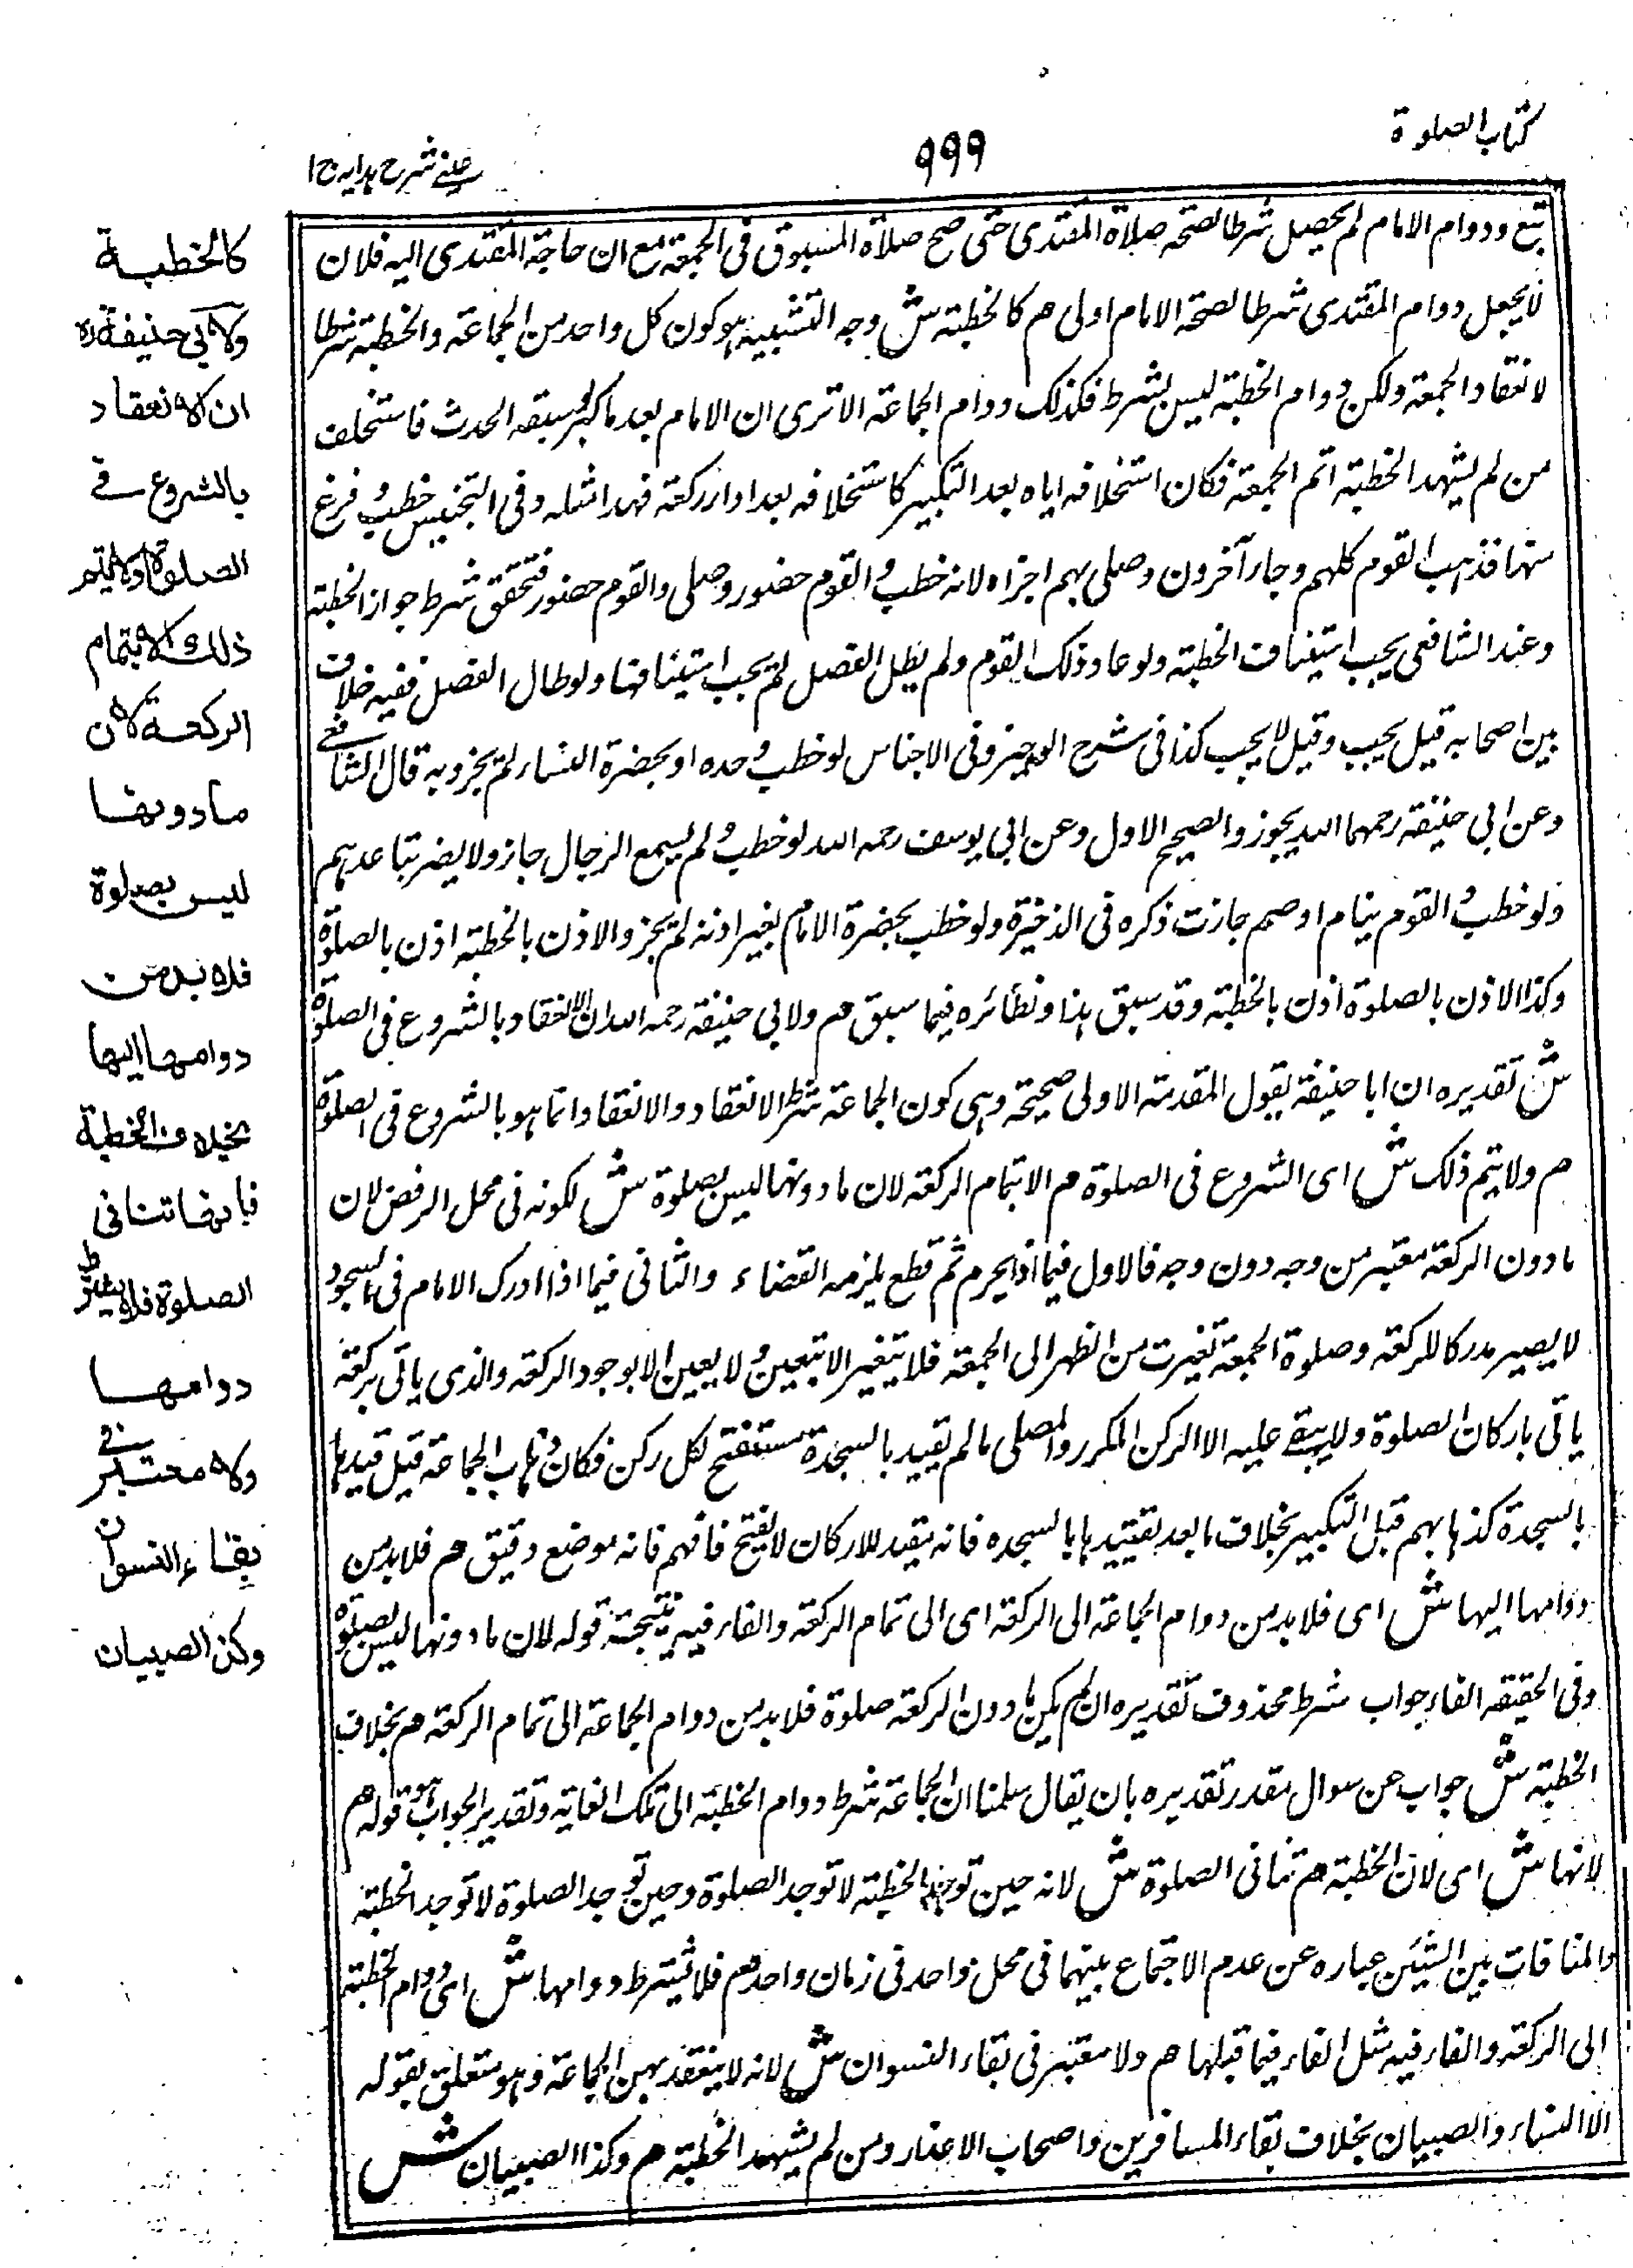 كتاب الصلوة
٩٩٩
عينى شرح ہدايہ ج ا
تبع ودوام الامام لم يحصل شرطا لصحة صلاة المقتدى حتى صح صلاة المسبوق فى الجمعة مع ان حاجة المقتدى اليه فلان
لا يجعل دوام المقتدى شرطا لصحة الامام اولى م كالخطبة ش وجه التشبيه هو كون كل واحد من الجماعة والخطبة شرطا
لانعقاد الجمعة ولكن دوام الخطبة ليس بشرط فكذلك دوام الجماعة الا ترى ان الامام بعد ما كبر سبقه الحدث فاستخلف
من لم يشهد الخطبة اتم الجمعة فكان استخلافه اياه بعد التكبير كاستخلافه بعد اداء ركعة فهذا مثله وفى التجنيس خطب وفرغ
منها فذهب القوم كلهم وجاء آخرون وصلى بهم اجزاه لانه خطب والقوم حضور وصلى والقوم حضور فتحقق شرط جواز الخطبة
وعند الشافعى يجب استيناف الخطبة ولو عاد ذلك القوم ولم يطل الفصل لم يجب استينافها ولو طال الفصل ففيه خلاف
بين اصحابه قيل يجب وقيل لا يجب كذا فى شرح الوجيز وفى الاجناس لو خطب وحده او بحضرة النساء لم يجز وبه قال الشافعى
وعن ابى حنيفة رحمهما الله يجوز والصحيح الاول وعن ابى يوسف رحمه الله لو خطب ولم يسمع الرجال جاز ولا يضر تباعدهم
ولو خطب والقوم نيام او صم جازت ذكره فى الذخيرة ولو خطب بحضرة الامام بغير اذنه لم يجز والاذن بالخطبة اذن بالصلوة
وكذا الاذن بالصلوة اذن بالخطبة وقد سبق هذا ونظائره فيما سبق م ولابى حنيفة رحمه الله ان الانعقاد بالشروع فى الصلوة
ش تقديره ان ابا حنيفة يقول المقدمة الاولى صحيحة وهى كون الجماعة شرط الانعقاد والانعقاد انما هو بالشروع فى الصلوة
م ولا يتم ذلك ش اى الشروع فى الصلوة م الا بتمام الركعة لان ما دونها ليس بصلوة ش لكونه فى محل الرفض لان
ما دون الركعة معتبر من وجه دون وجه فالاول فيما اذا يحرم ثم قطع يلزمه القضاء والثانى فيما اذا ادرك الامام فى السجود
لا يصير مدركا للركعة وصلوة الجمعة تغيرت من الظهر الى الجمعة فلا يتغير الا بتعين ولا يعين الا بوجود الركعة والذى ياتى بركعة
ياتى باركان الصلوة ولا يبقى عليه الا الركن المكرر والمصلى ما لم يقيد بالسجدة مستفتح لكل ركن فكان ذهاب الجماعة قبل قيدها
بالسجدة كذهابهم قبل التكبير بخلاف ما بعد تقييدها بالسجده فانه يقيد للاركان لا يفتح فافهم فانه موضع دقيق م فلا بد من
دوامها اليها ش اى فلا بد من دوام الجماعة الى الركعة اى الى تمام الركعة والفاء فيه نتيجة قوله لان ما دونها ليس بصلوة
وفى الحقيقة الفاء جواب شرط محذوف تقديره ان لم يكن ما دون الركعة صلوة فلا بد من دوام الجماعة الى تمام الركعة م بخلاف
الخطبة ش جواب عن سوال مقدر تقديره بان يقال سلمنا ان الجماعة شرط دوام الخطبة الى تلك الغاية وتقدير الجواب هو قوله م
لانها ش اى لان الخطبة م تنافى الصلوة ش لانه حين توجد الخطبة لا توجد الصلوة وحين توجد الصلوة لا توجد الخطبة
والمنافات بين الشيئن عباره عن عدم الاجتماع بينهما فى محل واحد فى زمان واحد م فلا يشترط دوامها ش اى دوام الخطبة
الى الركعة والفاء فيه مثل الفاء فيما قبلها م ولا معتبر فى بقاء النسوان ش لانه لا ينعقد بهن الجماعة وهو متعلق بقوله
الا النساء والصبيان بخلاف بقاء المسافرين واصحاب الاعذار ومن لم يشهد الخطبة م وكذا الصبيان ش
كالخطبة
ولابى حنيفة ره
ان الانعقاد
بالشروع فى
الصلوة ولا يتم
ذلك الا بتمام
الركعة لان
مادونها
ليس بصلوة
فلا بد من
دوامها اليها
بخلاف الخطبة
فانها تنافى
الصلوة فلا يشترط
دوامها
ولا معتبر فى
بقاء النسوان
وكذا الصبيان